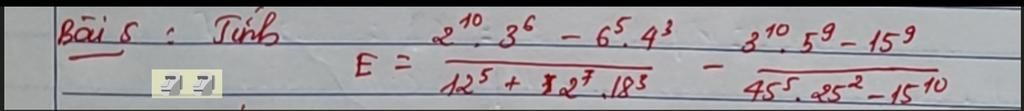 Bài 5 : Tính
E = \frac{2^{10} . 3^6 - 6^5 . 4^3}{12^5 + 2^7 . 18^3} - \frac{3^{10} . 5^9 - 15^9}{45^5 . 25^2 - 15^{10}}